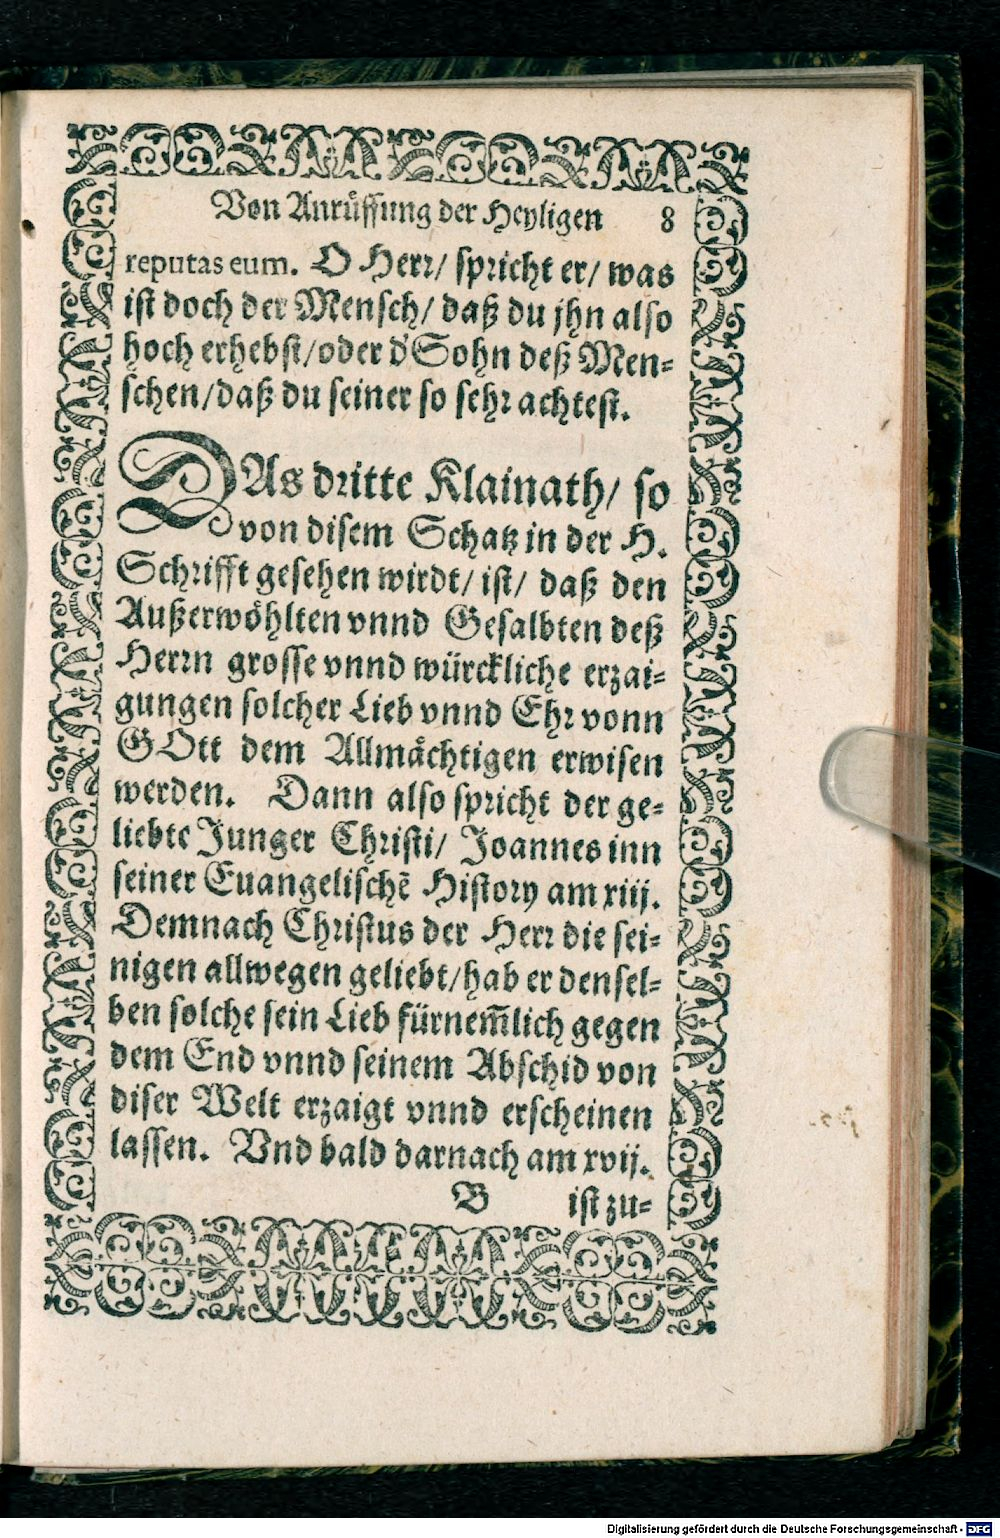 Von Anrüffung der Heyligen 8
reputas eum. O Herr/ spricht er/ was
ist doch der Mensch/ daß du jhn also
hoch erhebst/oder d' Sohn deß Men-
schen/daß du seiner so sehr achtest.
DAs dritte Klainath/ so
von disem Schatz in der H.
Schrifft gesehen wirdt/ ist/ daß den
Außerwöhlten vnnd Gesalbten deß
Herrn grosse vnnd würckliche erzai-
gungen solcher Lieb vnnd Ehr vonn
GOtt dem Allmächtigen erwisen
werden. Dann also spricht der ge-
liebte Junger Christi/ Joannes inn
seiner Euangelischē History am xiij.
Demnach Christus der Herr die sei-
nigen allwegen geliebt/hab er densel-
ben solche sein Lieb fürnem̃lich gegen
dem End vnnd seinem Abschid von
diser Welt erzaigt vnnd erscheinen
lassen. Vnd bald darnach am xvij.
B ist zu-
Digitalisierung gefördert durch die Deutsche Forschungsgemeinschaft - DFG